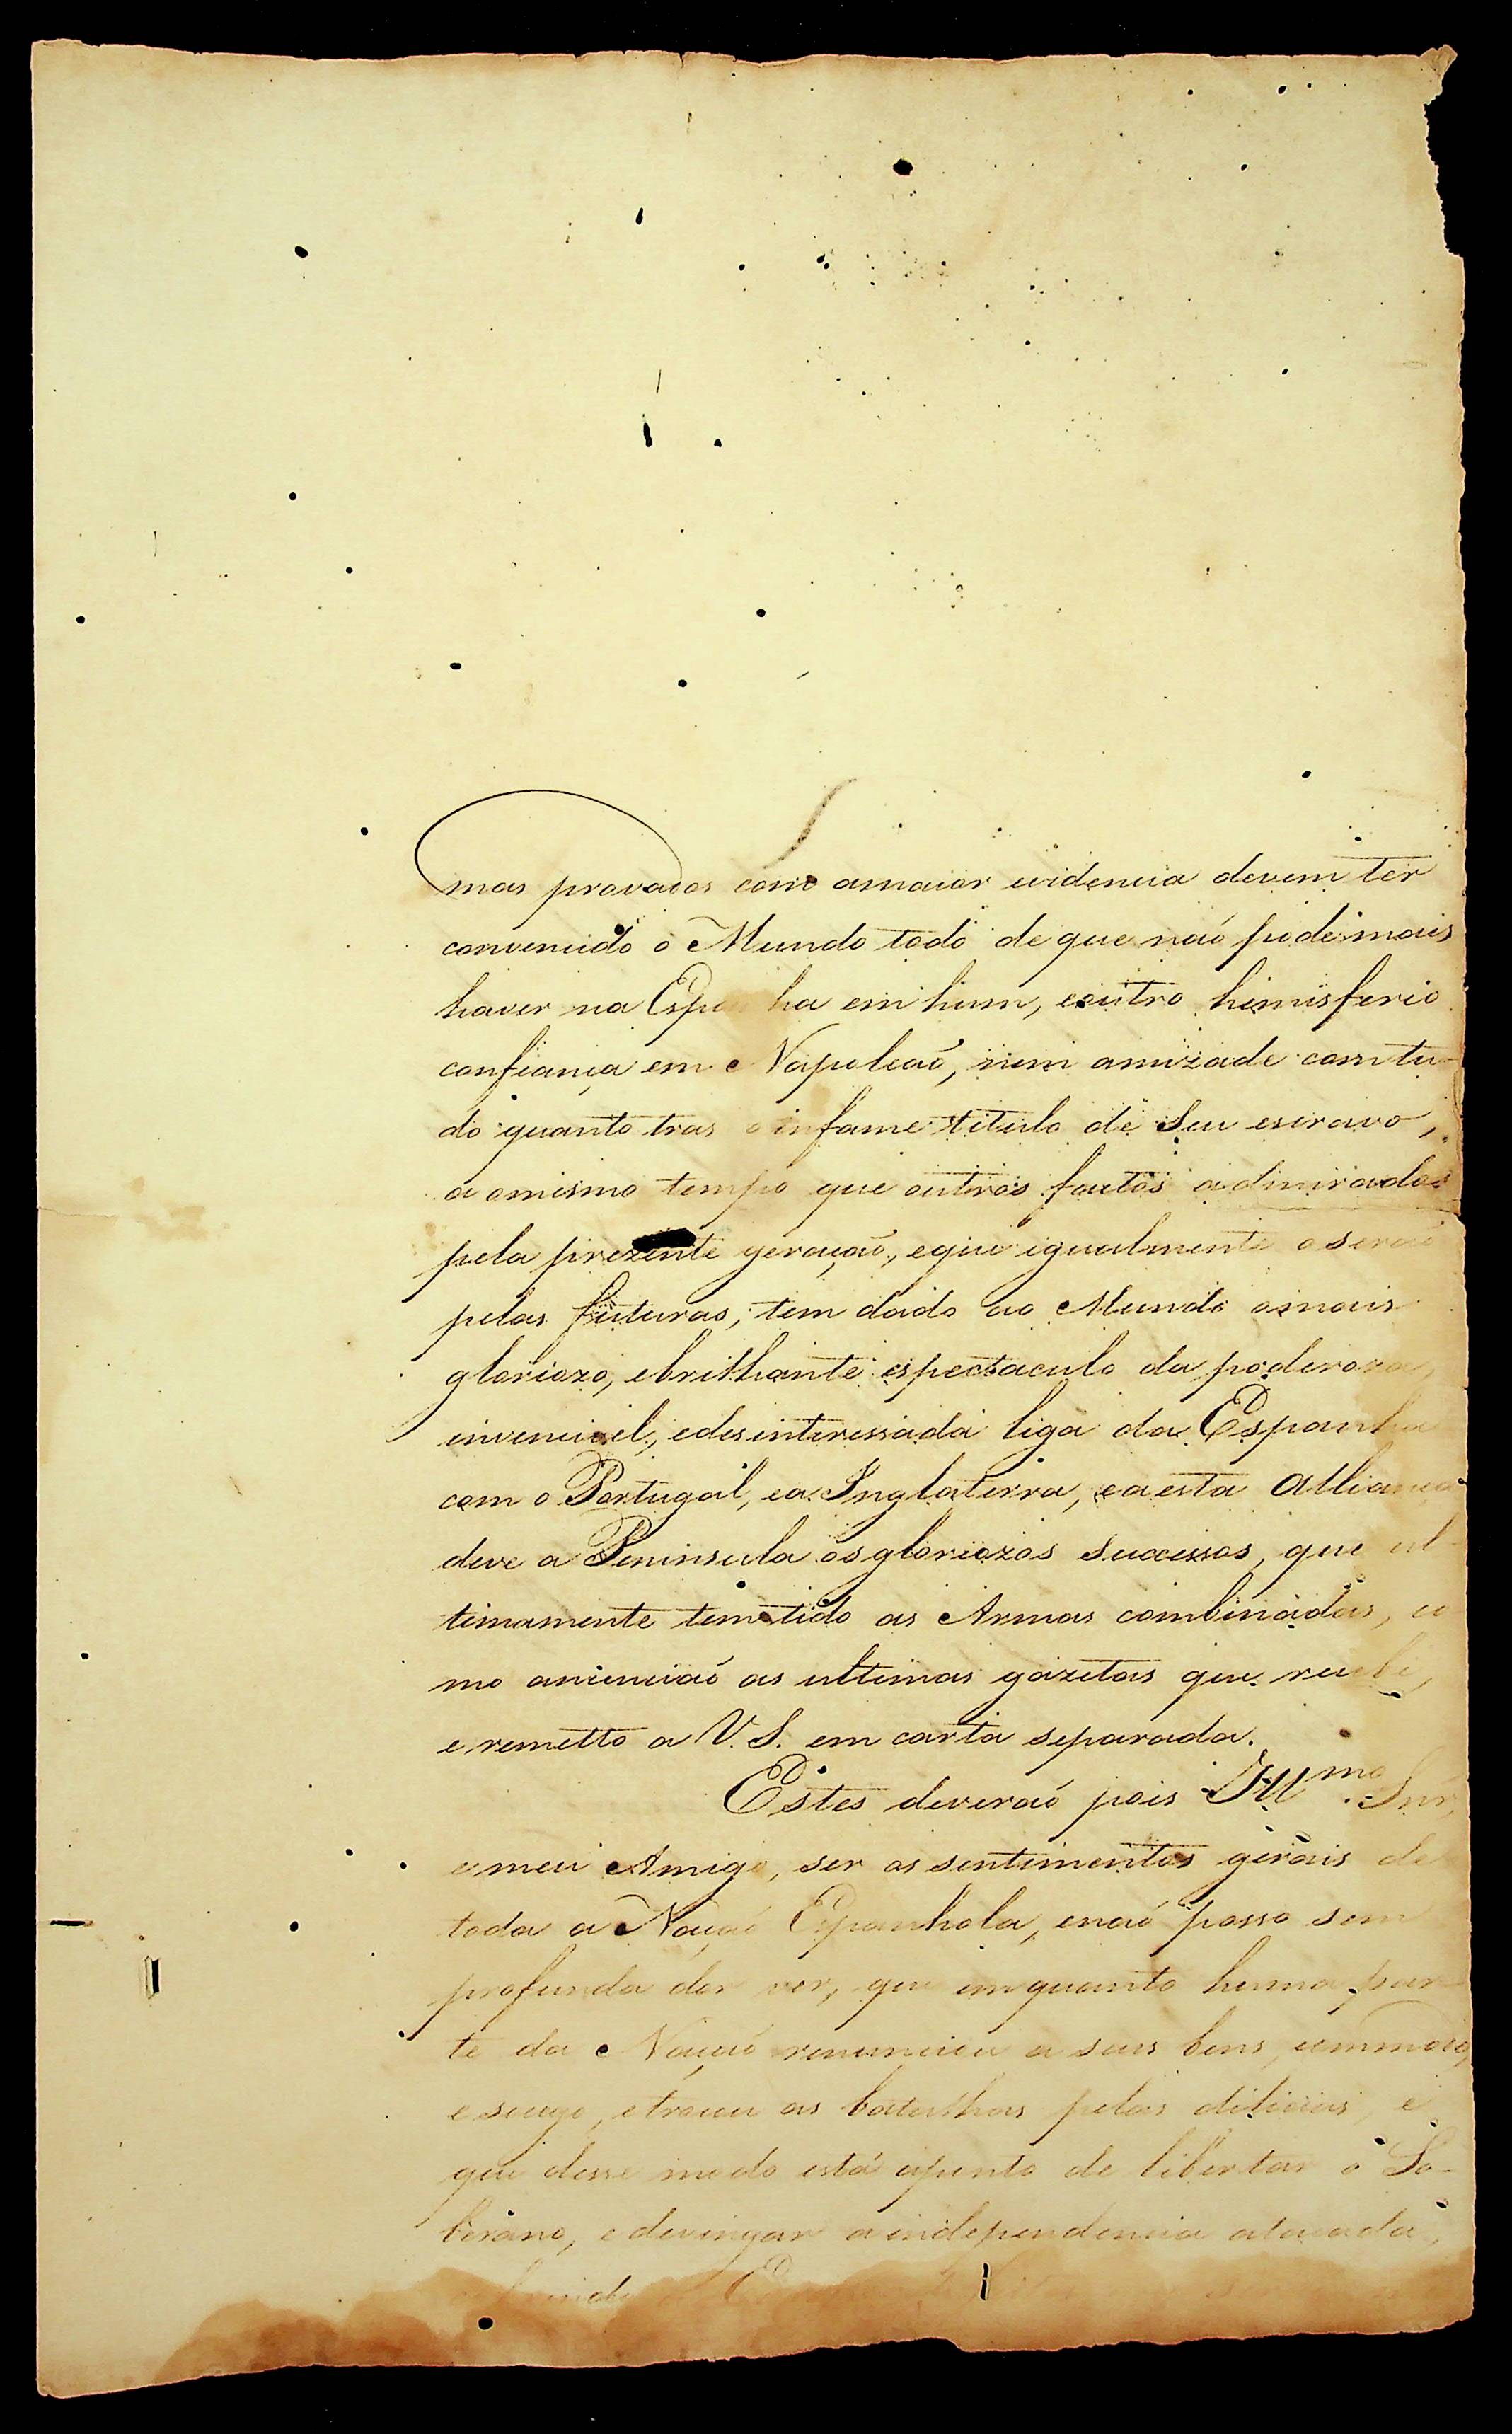 mas provados com amaior evidencia devem ter
convencido o Mundo todo de que naó pode mais
haver na Espanha em hum, eoutro himisferio
confiança em Napoleaó, nem amizade com tu-
do quanto tras o infame titulo de Seu escravo,
a omismo tempo que outros factos admirados
pela prezente geraçaó, eque igualmente o seraó
pelas futuras, tem dado ao Mundo omais
gloriozo, ebrilhante espectaculo da poderoza,
invencivel, edesinteressada liga da Espanha
com o Portugal, ea Inglaterra, eaesta Alliança
deve a Peninsula os gloriozos sucessos, que ul-
timamente tem tido as Armas combinadas, co
mo anunciaó as ultimas gazetas que recebi,
e remetto a V. S. em carta separada.
Estes deveraó pois Illmo. Snr.
e meu Amigo, ser os sentimentos gerais de
toda a Naçaó Espanhola, enaó posso sem
profunda dor ver, que emquanto huma par-
te da Naçaó renuncia a seus bens, commodo,
e socego, etrocou as batalhas pelas dilicias, e
que desse modo está aponto de libertar o So-
berano, edevingar aindependencia atacada,